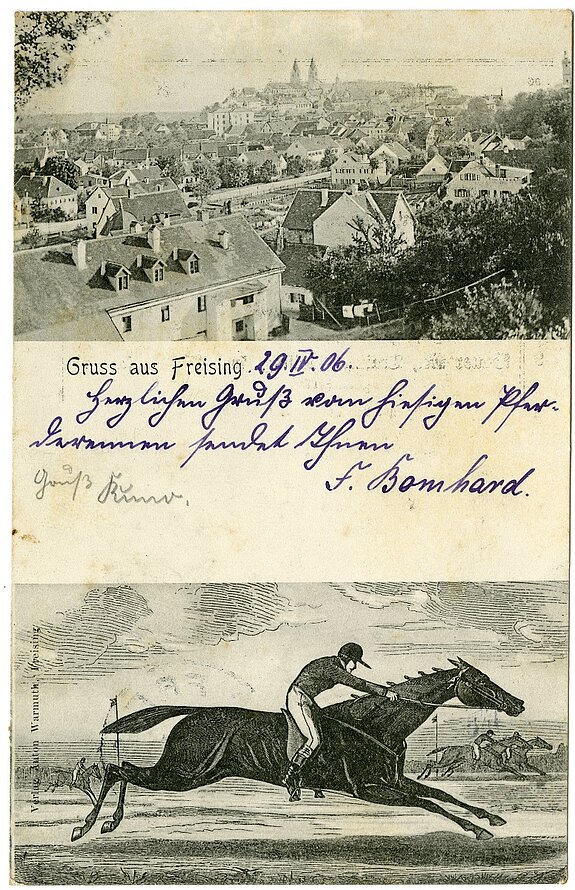 Gruss aus Freising. 29.IV.06.
Herzlichen Gruß vom hiesigen Pfer-
derennen sendet Ihnen
F. Bomhard.
Gruß
Verlag Anton Warmuth, Freising